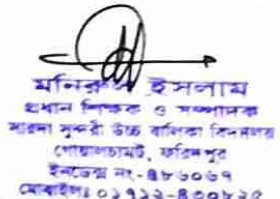 মনিরুল ইসলাম
প্রধান শিক্ষক ও সম্পাদক
সারদা সুন্দরী উচ্চ বালিকা বিদ্যালয়
গোয়ালচামট, ফরিদপুর
ইনডেক্স নং-৪৮৬০৬৭
মোবাইলঃ